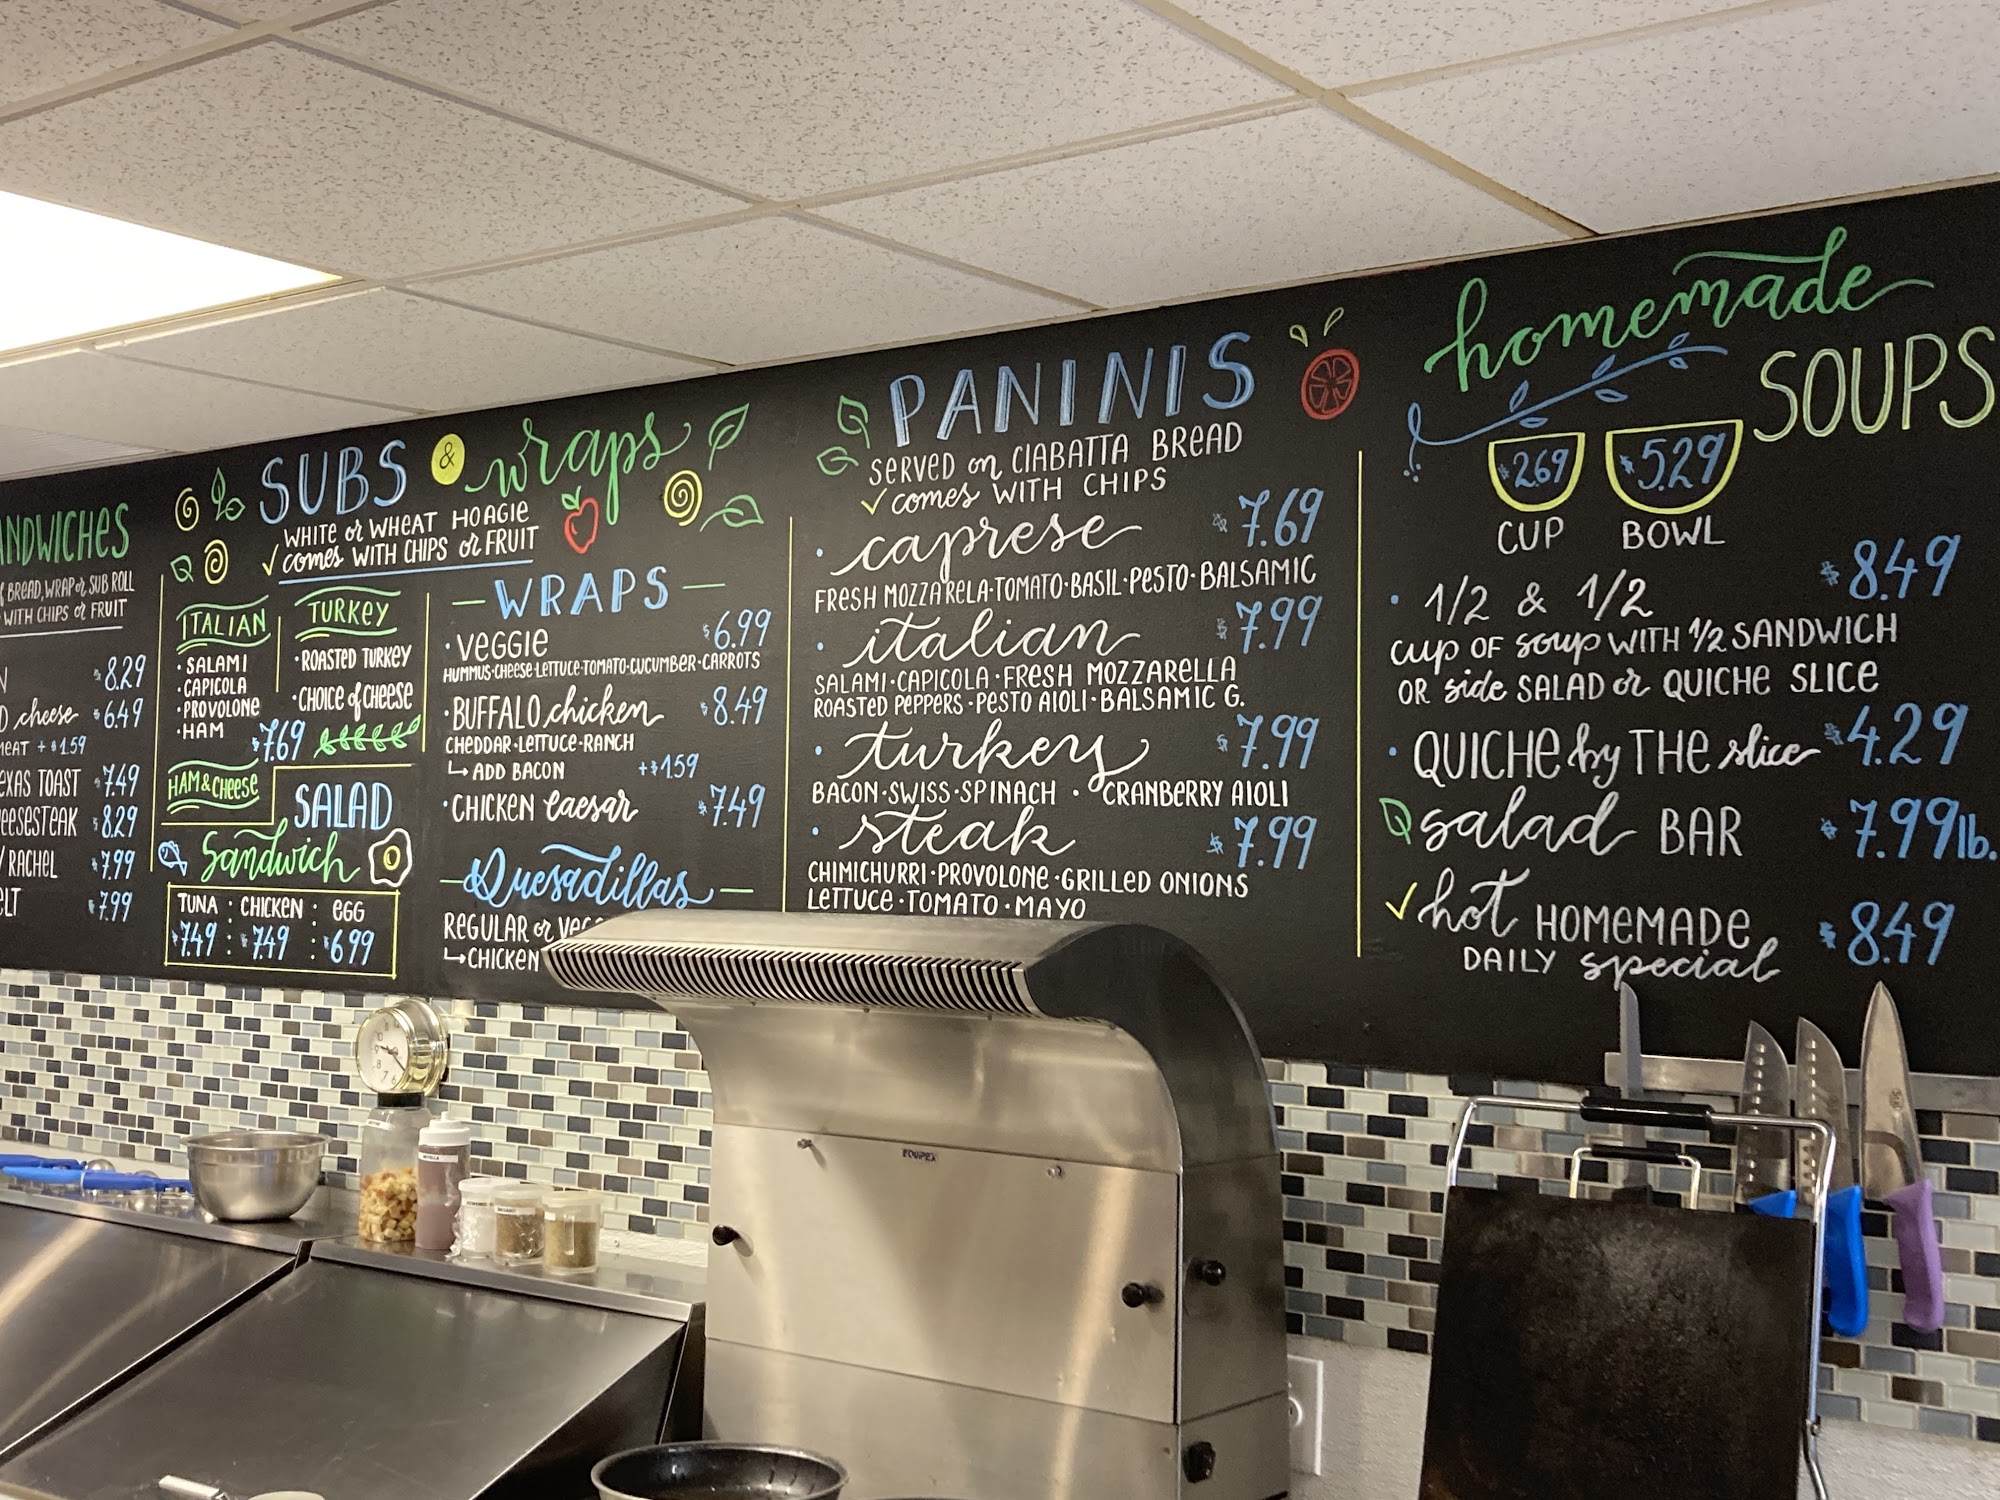 SANDWICHES
BREAD, WRAP or SUB ROLL
WITH CHIPS or FRUIT
$8.29
cheese $6.49
MEAT + $1.59
TEXAS TOAST $7.49
CHEESESTEAK $8.29
/ RACHEL $7.99
$7.99
SUBS & wraps
WHITE or WHEAT HOAGIE
✓ comes WITH CHIPS or FRUIT
ITALIAN
• SALAMI
• CAPICOLA
• PROVOLONE
• HAM
$7.69
TURKEY
• ROASTED TURKEY
• CHOICE of CHEESE
HAM & CHEESE
SALAD
Sandwich
TUNA : CHICKEN : EGG
$7.49 : $7.49 : $6.99
— WRAPS —
• VEGGIE $6.99
HUMMUS • CHEESE • LETTUCE • TOMATO • CUCUMBER • CARROTS
• BUFFALO chicken $8.49
CHEDDAR • LETTUCE • RANCH
↳ ADD BACON +$1.59
• CHICKEN Caesar $7.49
— Quesadillas —
REGULAR or
↳ CHICKEN
PANINIS
SERVED on CIABATTA BREAD
✓ comes WITH CHIPS
• caprese $7.69
FRESH MOZZARELA • TOMATO • BASIL • PESTO • BALSAMIC
• italian $7.99
SALAMI • CAPICOLA • FRESH MOZZARELLA
ROASTED PEPPERS • PESTO AIOLI • BALSAMIC G.
• turkey $7.99
BACON • SWISS • SPINACH • CRANBERRY AIOLI
• steak $7.99
CHIMICHURRI • PROVOLONE • GRILLED ONIONS
LETTUCE • TOMATO • MAYO
homemade
SOUPS
$2.69 $5.29
CUP BOWL
• 1/2 & 1/2 $8.49
CUP OF soup WITH 1/2 SANDWICH
OR side SALAD or QUICHE SLICE
• QUICHE by THE slice $4.29
salad BAR $7.99 lb.
✓ hot HOMEMADE $8.49
DAILY special
EQUIPEX